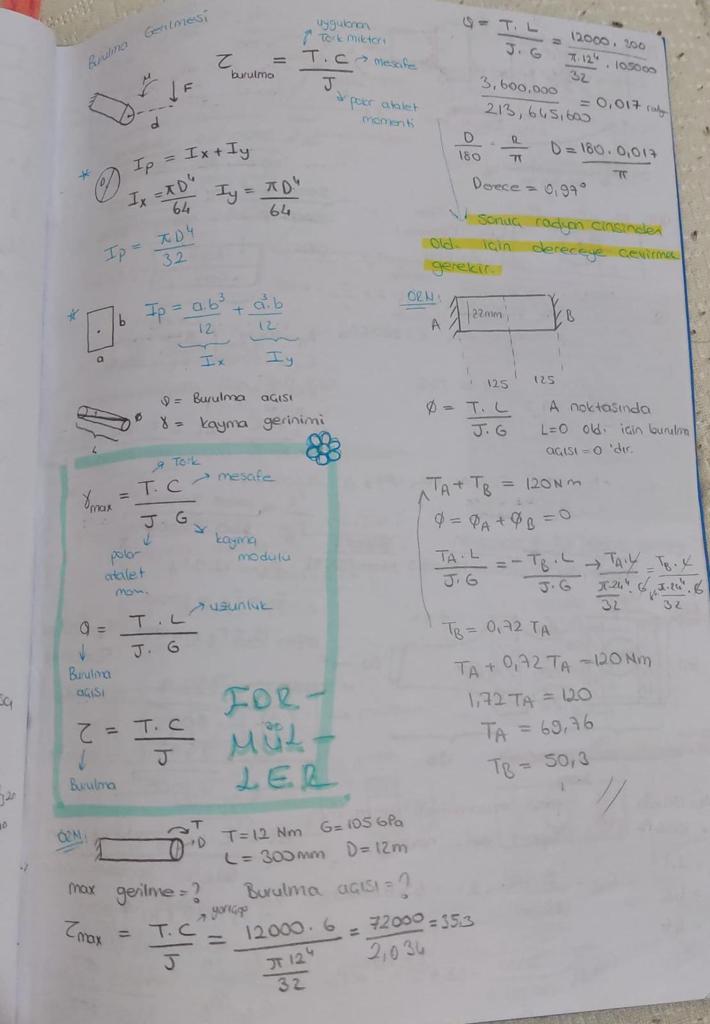 Burulma Gerilmesi
uygulanan
Tork miktarı
τ burulma = T.C / J → mesafe
polar atalet
momenti
M
F
d
* Ip = Ix + Iy
Ix = πD⁴/64 Iy = πD⁴/64
Ip = πD⁴/32
* a b
Ip = a.b³/12 + a³.b/12
Ix Iy
L
φ = Burulma açısı
γ = kayma gerinimi
Tork
γmax = T.C / J.G → mesafe
polar
atalet
mom.
kayma
modulu
φ = T.L / J.G → uzunluk
Burulma
açısı
τ = T.C / J
Burulma
FOR-
MÜL-
LER
ÖRN:
T
D
T=12 Nm G=105 GPa
L = 300mm D=12m
max gerilme=? Burulma açısı=?
yarıçap
τmax = T.C / J = 12000.6 / (π12⁴/32) = 72000/2,034 = 35.3
φ = T.L / J.G = 12000.300 / (π.12⁴/32 . 105000)
3,600,000 / 213,645,600 = 0,017 rady
D/180 . R/π D = 180.0,017 / π
Derece = 0,97°
sonuç radyan cinsinden
old. için dereceye çevirmek
gerekir.
ÖRN:
A 22mm B
125 125
Ø = T.L / J.G
A noktasında
L=0 old. için burulma
açısı =0 'dır.
TA + TB = 120Nm
Ø = ØA + ØB = 0
TA.L / J.G = - TB.L / J.G → TA.L / (π.24⁴/32 . G) = TB.L / (π.24⁴/32 . G)
TB = 0,72 TA
TA + 0,72 TA = 120 Nm
1,72 TA = 120
TA = 69,76
TB = 50,3